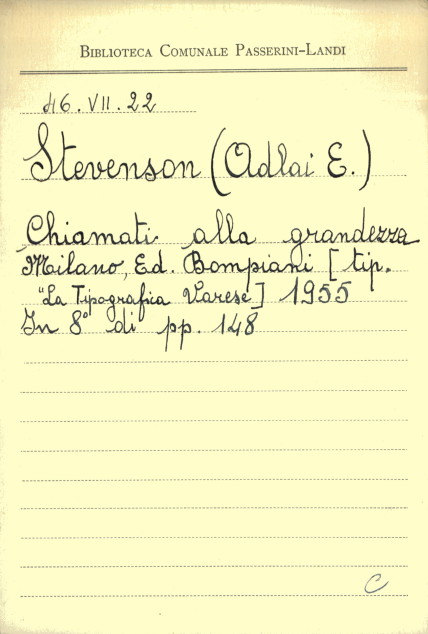 BIBLIOTECA COMUNALE PASSERINI-LANDI
46.VII.22
Stevenson (Adlai E.)
Chiamati alla grandezza
Milano, Ed. Bompiani [tip.
"La Tipografica Varese] 1955
In 8° di pp. 148
C